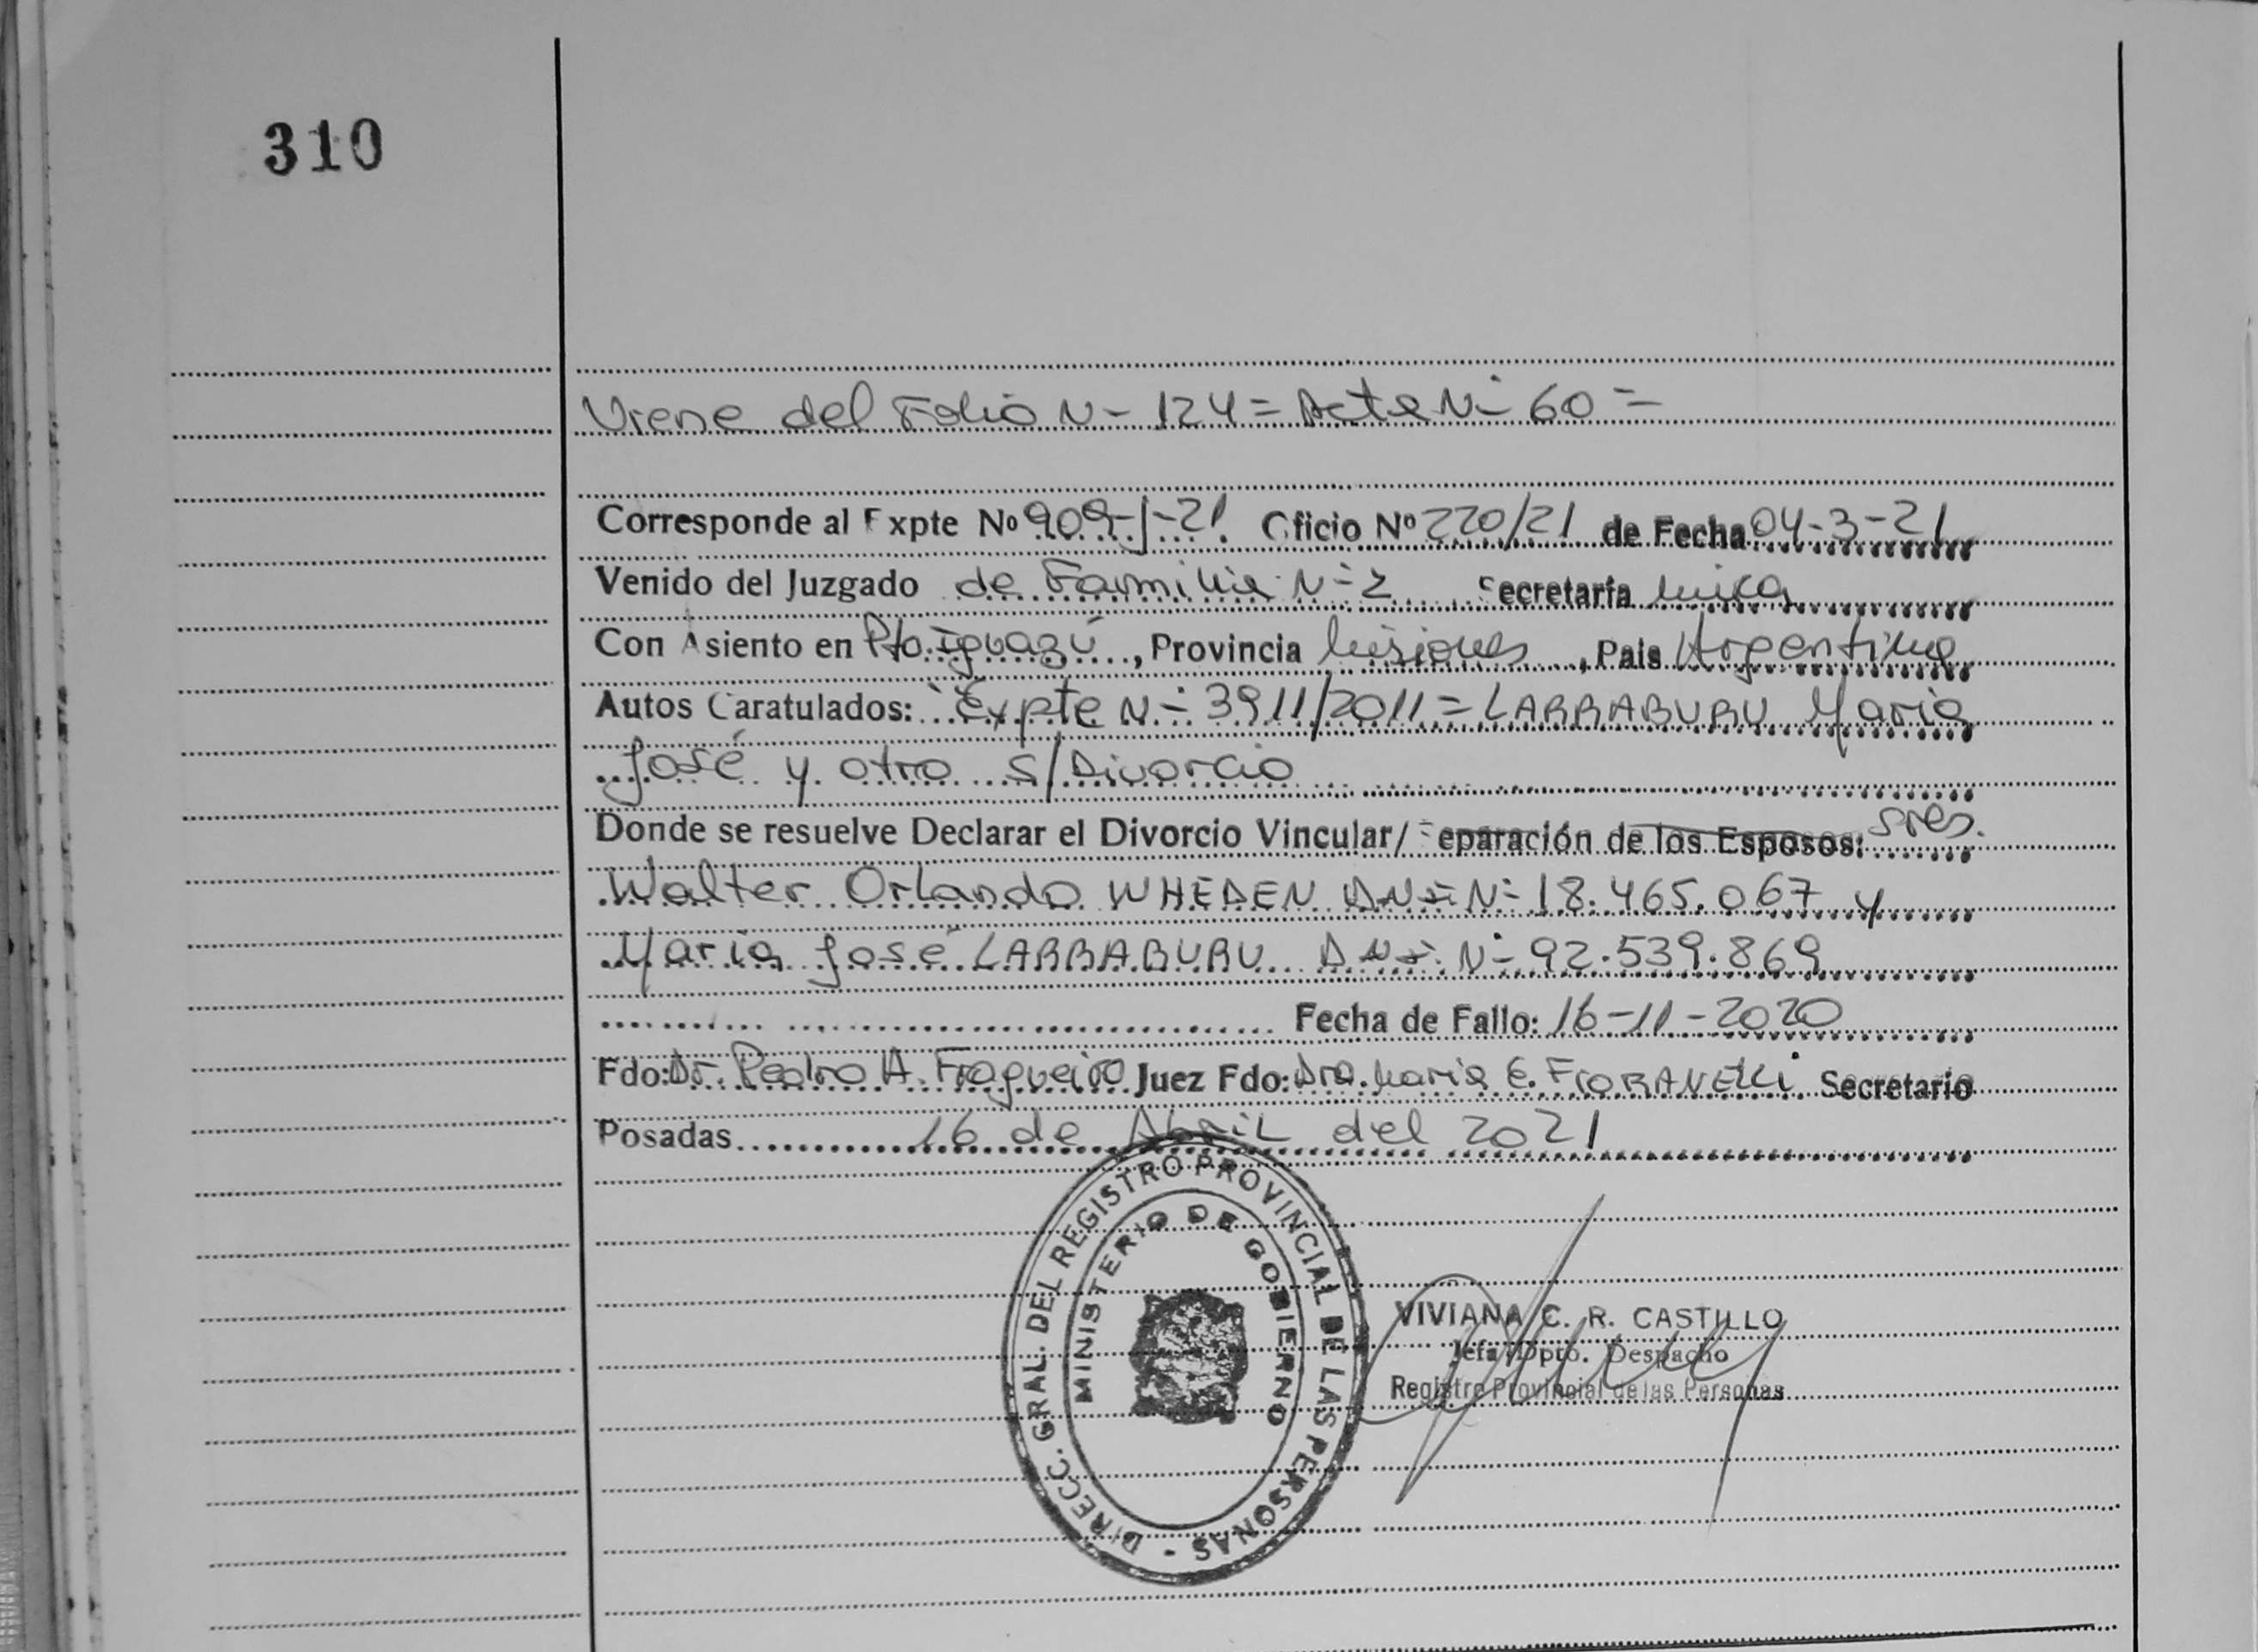 310
Viene del Folio N- 124 = Acta N- 60 =
Corresponde al Expte Nº 909-J-21. Oficio Nº 220/21 de Fecha 04-3-21
Venido del Juzgado de Familia N- 2 Secretaría Unica
Con Asiento en Pto. Iguazú, Provincia Misiones, Pais Argentina
Autos Caratulados: "Expte N- 3911/2011 = LARRABURU Maria
José y otro s/Divorcio
Donde se resuelve Declarar el Divorcio Vincular/ Separación de los Esposos: Sres.
Walter Orlando WHEDEN DNI N- 18.465.067 y
Maria José LARRABURU DNI N- 92.539.869
Fecha de Fallo: 16-11-2020
Fdo: Dr. Pedro A. Fragueiro Juez Fdo: Dra. Maria E. FIORANELLI Secretario
Posadas 16 de Abril del 2021
DIRECC. GRAL. DEL REGISTRO PROVINCIAL DE LAS PERSONAS -
MINISTERIO DE GOBIERNO
VIVIANA C. R. CASTILLO
Jefa Dpto. Despacho
Registro Provincial de las Personas